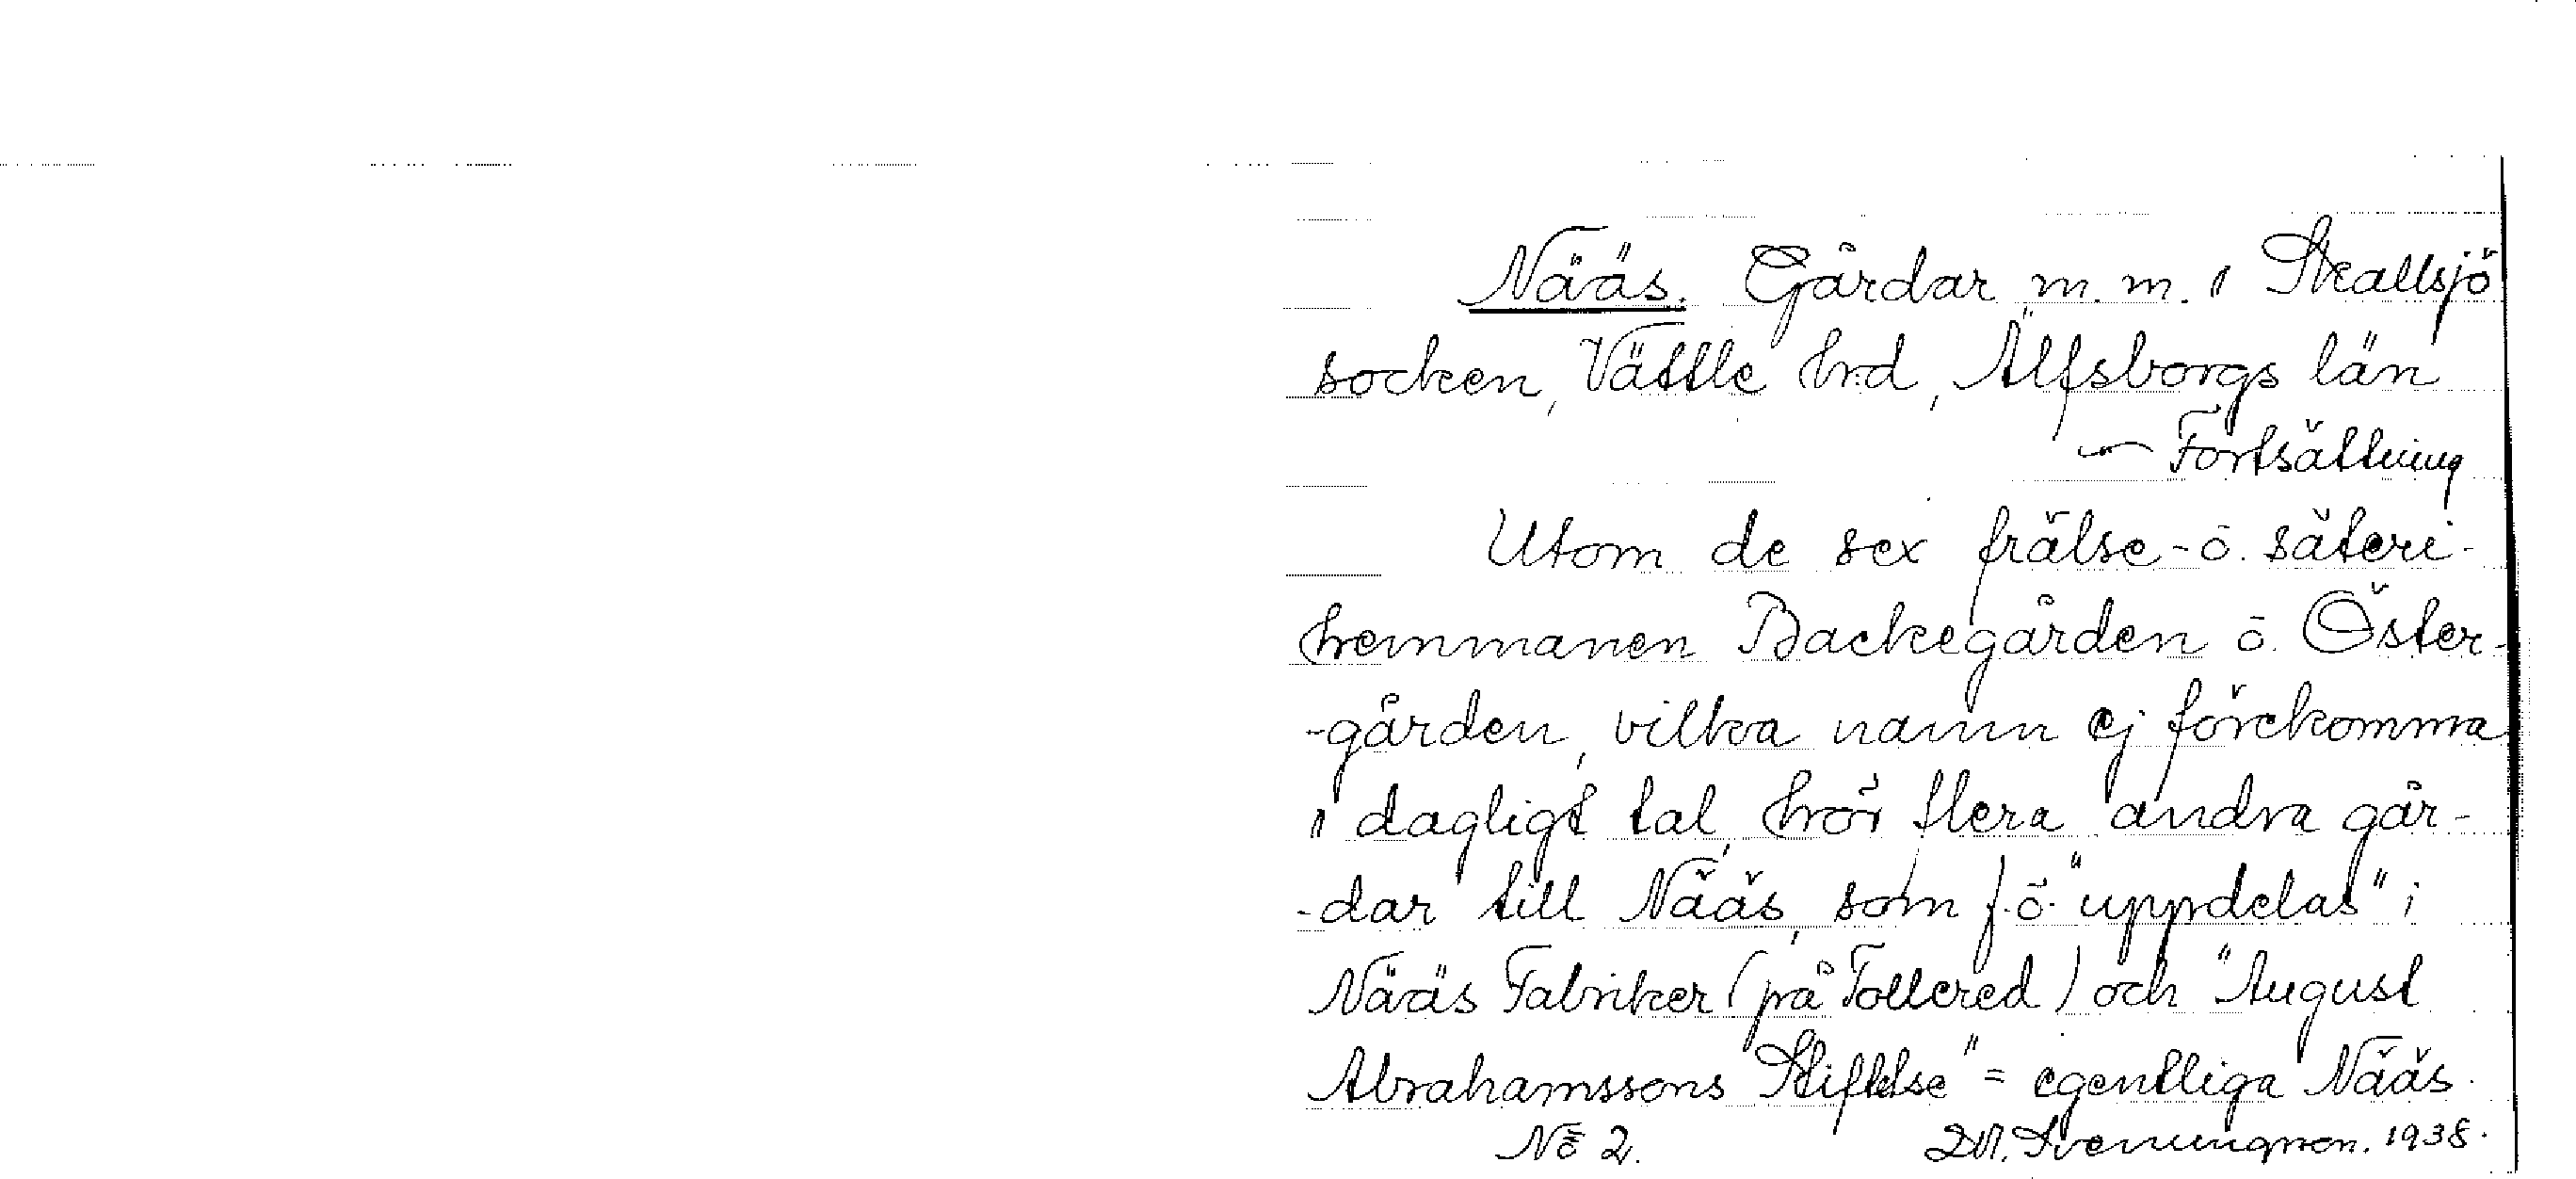 Nääs. Gårdar m. m. i Skallsjö
socken, Vättle hrd, Älfsborgs län
— Fortsättning
Utom de sex frälse- o. säteri-
hemmanen Backegården o. Öster-
-gården, vilka namn ej förekomma
i dagligt tal, hör flera andra går-
-dar till Nääs, som f. ö. "uppdelas" i
Nääs Fabriker (på Tollered) och "August
Abrahamssons Stiftelse" = egentliga Nääs.
No 2. D. A. Svenungsson. 1938.